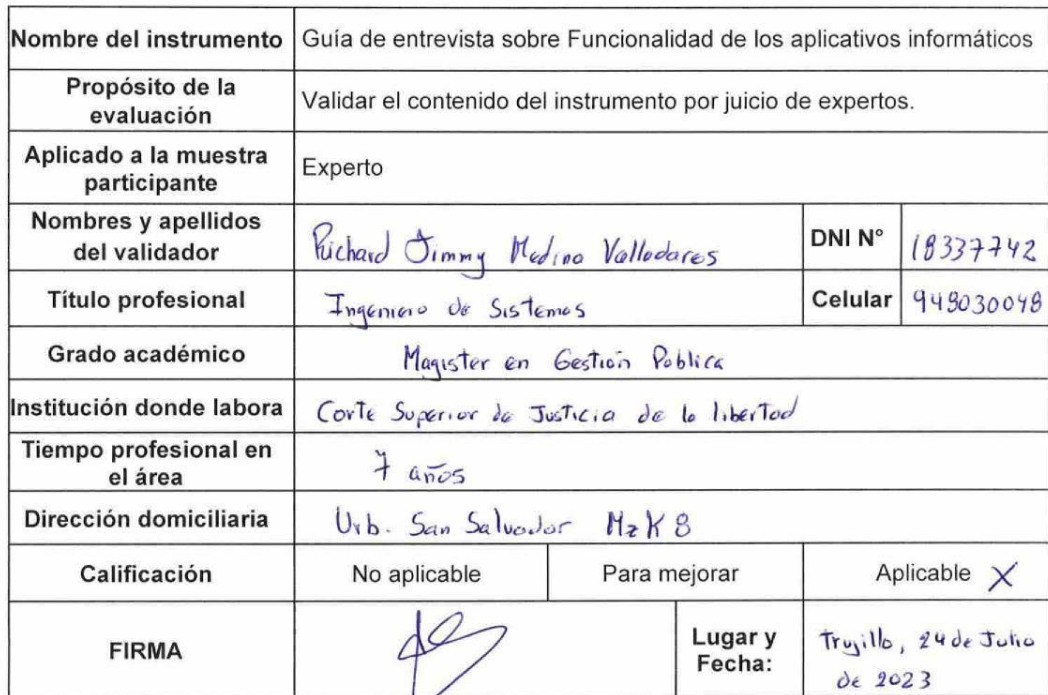 Nombre del instrumento Guía de entrevista sobre Funcionalidad de los aplicativos informáticos
Propósito de la
evaluación
Validar el contenido del instrumento por juicio de expertos.
Aplicado a la muestra
participante
Experto
Nombres y apellidos
del validador
Richard Jimmy Medina Valladares
DNI N° 18337742
Título profesional Ingeniero de Sistemas Celular 948030048
Grado académico Magister en Gestión Pública
Institución donde labora Corte Superior de Justicia de la libertad
Tiempo profesional en
el área
7 años
Dirección domiciliaria Urb. San Salvador Mz K 8
Calificación No aplicable Para mejorar Aplicable X
FIRMA
Lugar y
Fecha:
Trujillo, 24 de Julio
de 2023